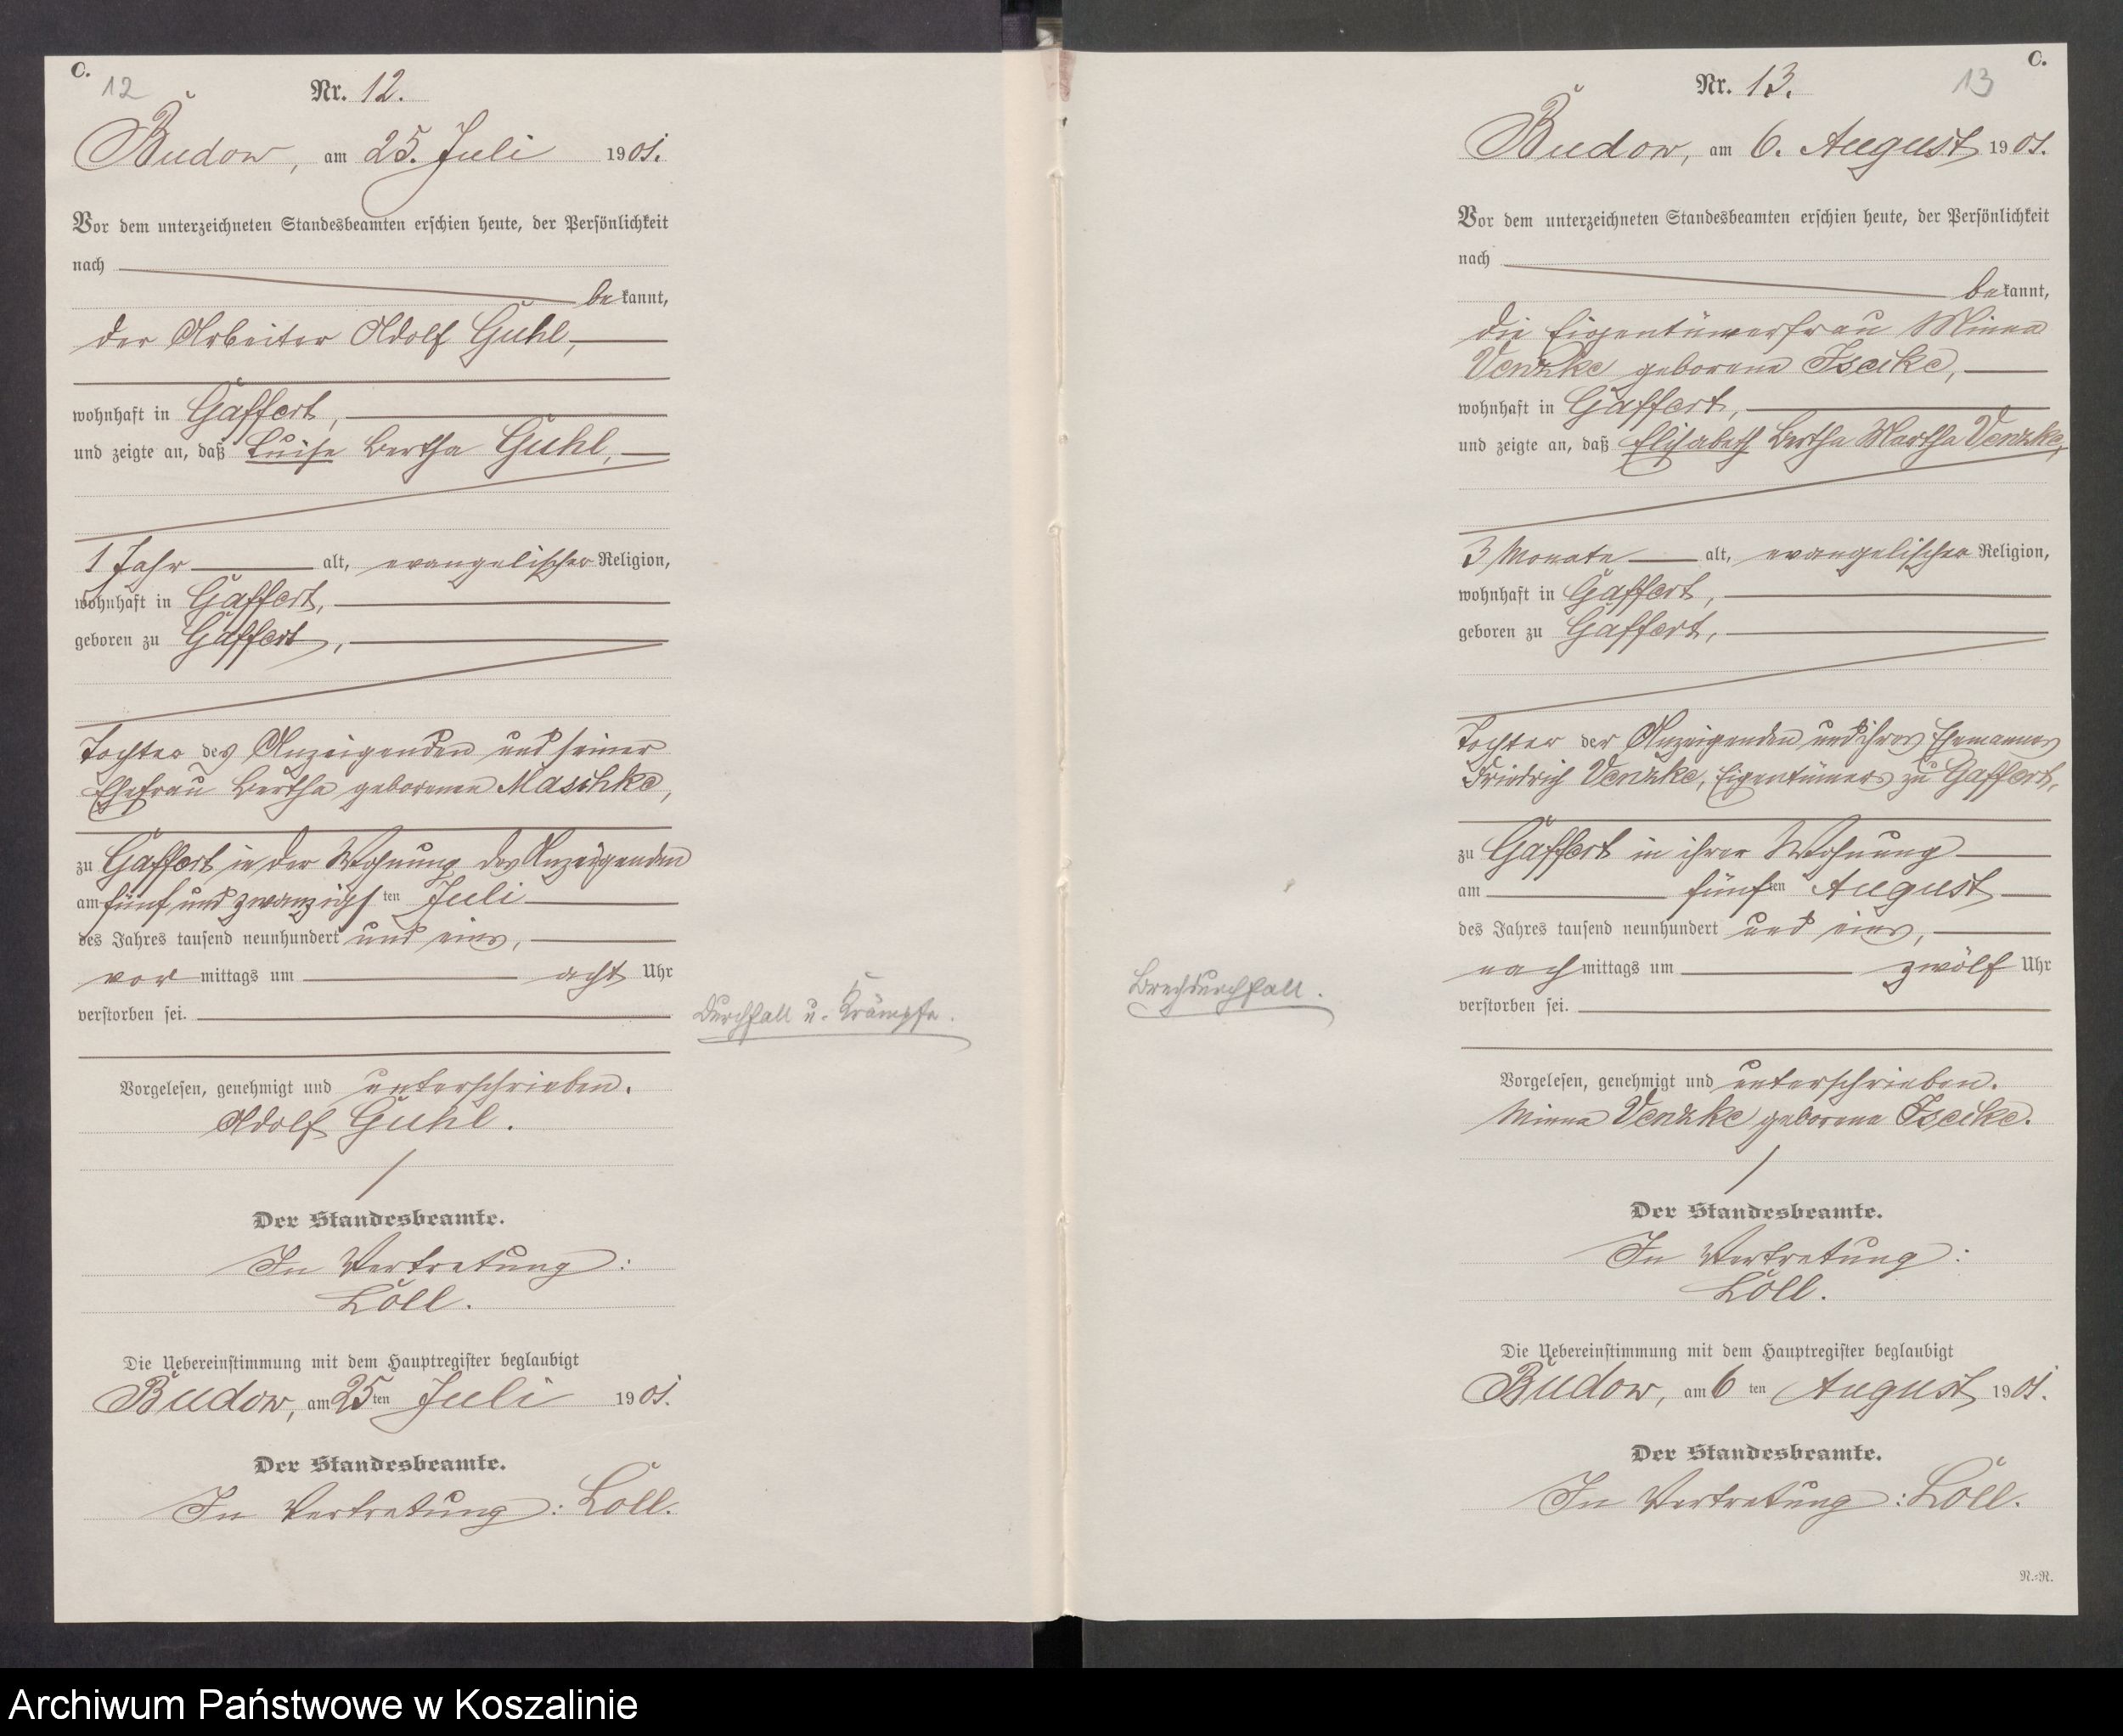 C.
12
Nr. 12.
Budow, am 25. Juli 1901.
Vor dem unterzeichneten Standesbeamten erschien heute, der Persönlichkeit
nach
bekannt,
der Arbeiter Adolf Guhl,
wohnhaft in Gaffert,
und zeigte an, daß Luise Bertha Guhl,
1 Jahr alt, evangelischer Religion,
wohnhaft in Gaffert,
geboren zu Gaffert,
Tochter des Anzeigenden und seiner
Ehefrau Bertha geborenen Maschke,
zu Gaffert in der Wohnung des Anzeigenden
am fünf und zwanzigsten Juli
des Jahres tausend neunhundert und eins,
vormittags um acht Uhr
verstorben sei.
Durchfall u. Krämpfe.
Vorgelesen, genehmigt und unterschrieben.
Adolf Guhl.
Der Standesbeamte.
In Vertretung:
Löll.
Die Uebereinstimmung mit dem Hauptregister beglaubigt
Budow, am 25ten Juli 1901.
Der Standesbeamte.
In Vertretung: Löll.
C.
13
Nr. 13.
Budow, am 6. August 1901.
Vor dem unterzeichneten Standesbeamten erschien heute, der Persönlichkeit
nach
bekannt,
die Eigentümerfrau Minna
Venzke geborene Iseike,
wohnhaft in Gaffert,
und zeigte an, daß Elisabeth Bertha Martha Venzke,
3 Monate alt, evangelischer Religion,
wohnhaft in Gaffert,
geboren zu Gaffert,
Tochter der Anzeigenden und ihres Ehemannes
Friedrich Venzke, Eigentümers zu Gaffert,
zu Gaffert in ihrer Wohnung
am fünften August
des Jahres tausend neunhundert und eins,
nachmittags um zwölf Uhr
verstorben sei.
Brechdurchfall.
Vorgelesen, genehmigt und unterschrieben.
Minna Venzke geborene Iseike.
Der Standesbeamte.
In Vertretung:
Löll.
Die Uebereinstimmung mit dem Hauptregister beglaubigt
Budow, am 6ten August 1901.
Der Standesbeamte.
In Vertretung: Löll.
N.=N.
Archiwum Państwowe w Koszalinie